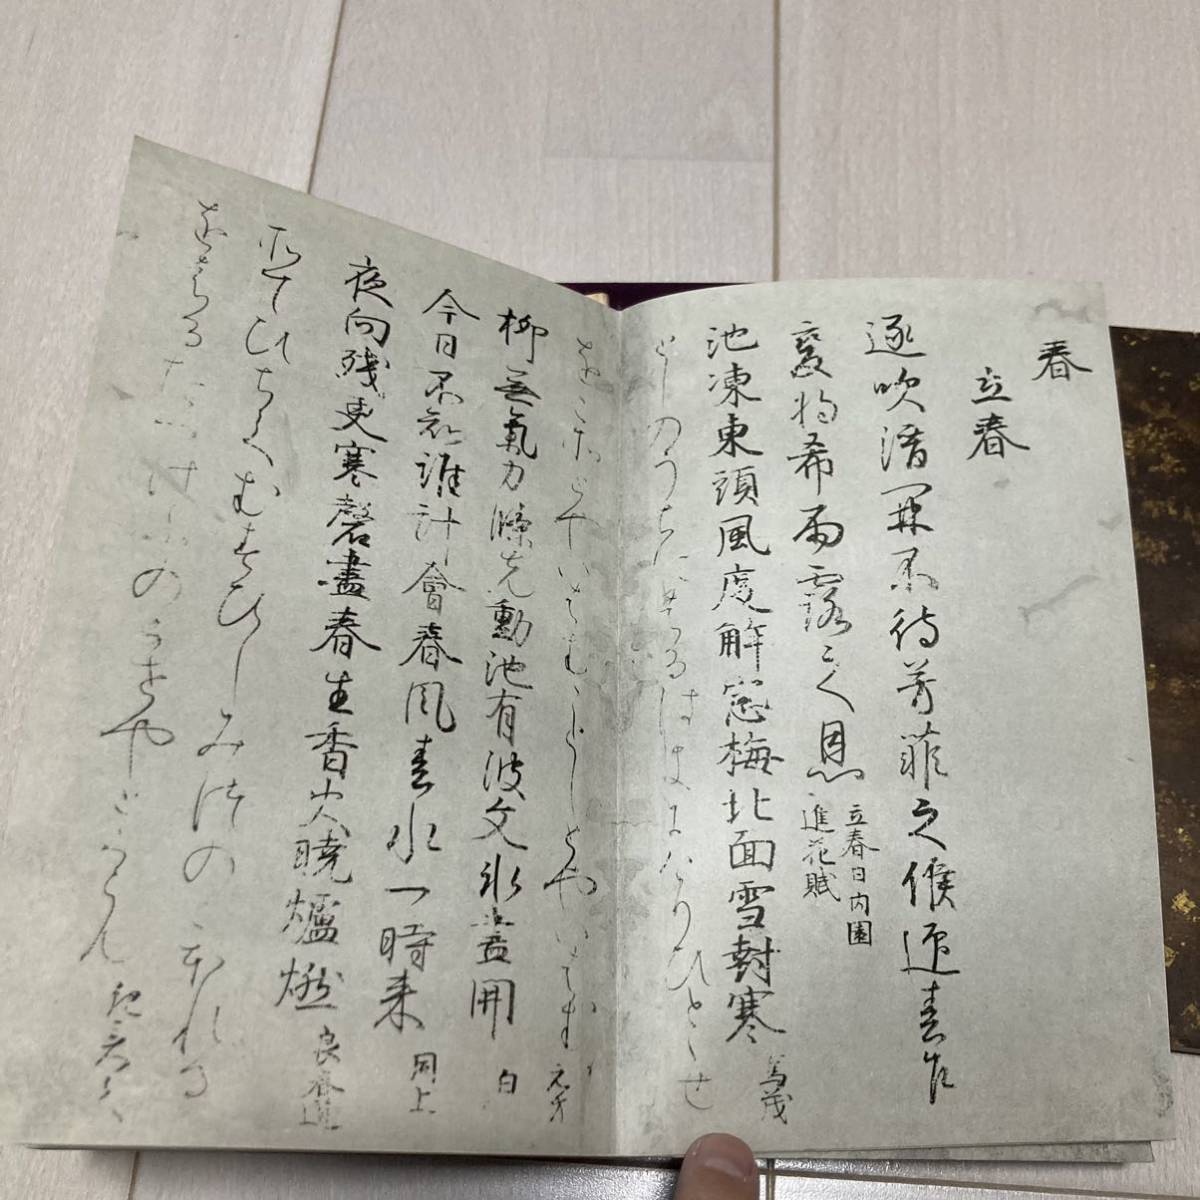 春
立春
逐吹潜開不待芳菲之候迎春乍
變将希雨露之恩
立春日内園
進花賦
池凍東頭風度解窓梅北面雪封寒 篤茂
としのうちにはるはきにけりひとゝせ
をこそとやいはむことしとやいはむ 元方
柳無氣力條先動池有波文氷盡開 白
今日不知誰計會春風春水一時来 同上
夜向残更寒磬盡春生香火曉爐燃 良春道
そてひちてむすひしみつのこほれる
をはるたつけふのかせやとくらん 紀貫之